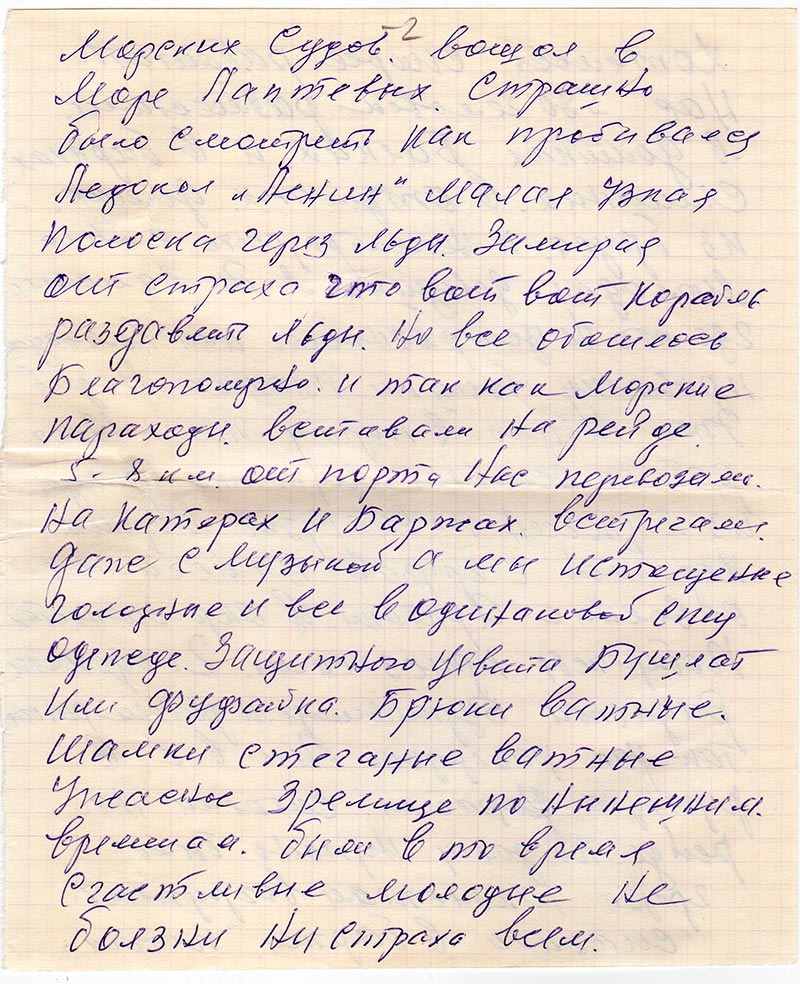 -2
Морских Судов. вошол в
Море Лаптевых. Страшно
было смотреть как пробивался
Ледокол „Ленин“ Малая Узкая
полоска через льды. Замирая
от страха что вот вот Корабль
раздавит льды. Но все обошлось
Благополучно. и так как Морские
параходы. вставали На рейде.
5-8 км. от порта Нас перевозили.
На Катерах и Баржах. встречали.
даже с музыкой а мы истощенные
голодные и все в одинаковой спец
одежде. Защитного цвета Бушлат
или фуфайка. Брюки ватные.
шапки стеганые ватные
Ужасное Зрелище по нынешним.
временам. были в то время
счастливые молодые Не
боязни Ни страха всем.